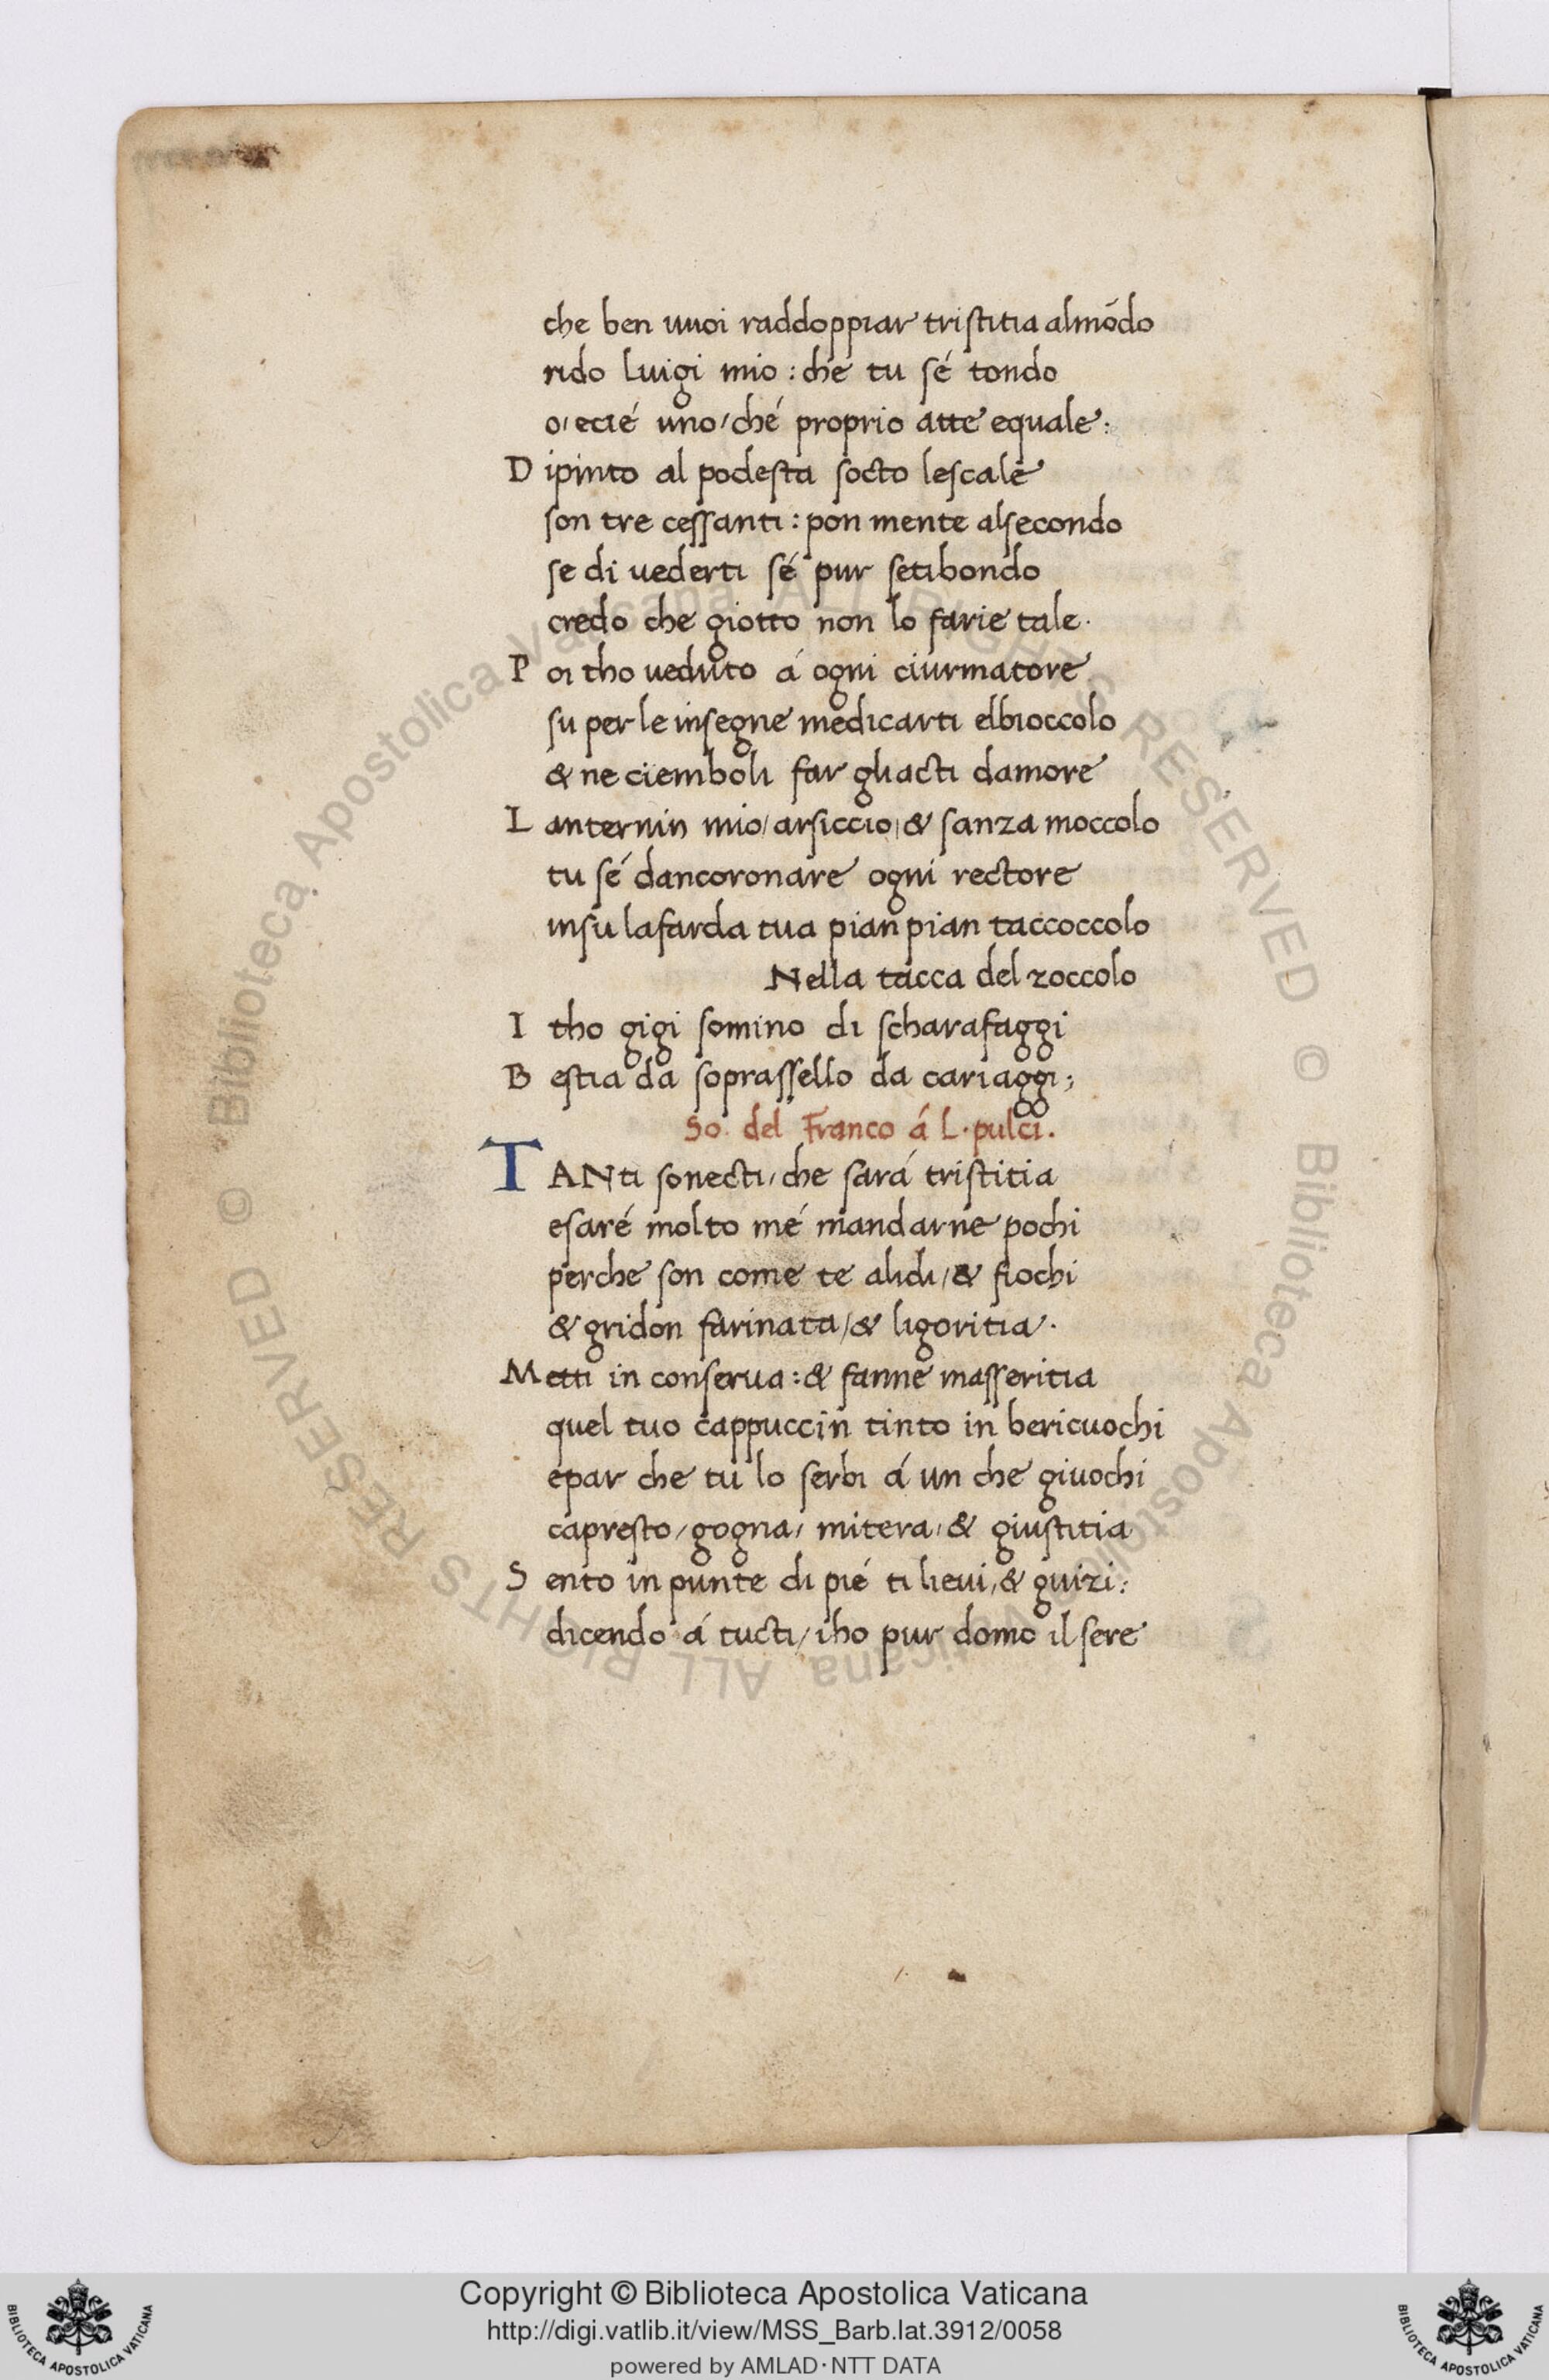 che ben vuoi raddoppiar tristitia almódo
rido luigi mio : che tu sé tondo
o, ecié uno, ché proprio atte equale :
Dipinto al podesta socto lescale
son tre cessanti : pon mente alsecondo
se di uederti sé pur setibondo
credo che giotto non lo farie tale.
Poi tho ueduto á ogni ciurmatore
su per le insegne medicarti elbioccolo
& ne ciemboli far gliacti damore
Lanternin mio, arsiccio, & sanza moccolo
tu sé dancoronare ogni rectore
insu lafarda tua pian pian taccoccolo
Nella tacca del zoccolo
Itho gigi somino di scharafaggi
Bestia da soprassello da cariaggi ;
So. del Franco á L. pulci.
TANti sonecti, che sará tristitia
esaré molto mé mandarne pochi
perche son come te alidi, & fiochi
& gridon farinata, & ligoritia.
Metti in conserua : & fanne masseritia
quel tuo cappuccin tinto in bericuochi
epar che tu lo serbi á un che giuochi
capresto, gogna, mitera, & giustitia
Sento in punte di pié ti lieui, & guizi :
dicendo á tucti, iho pur domo il sere
Copyright © Biblioteca Apostolica Vaticana
http://digi.vatlib.it/view/MSS_Barb.lat.3912/0058
powered by AMLAD·NTT DATA
BIBLIOTECA APOSTOLICA VATICANA
BIBLIOTECA APOSTOLICA VATICANA
© Biblioteca Apostolica Vaticana ALL RIGHTS RESERVED © Biblioteca Apostolica Vaticana ALL RIGHTS RESERVED